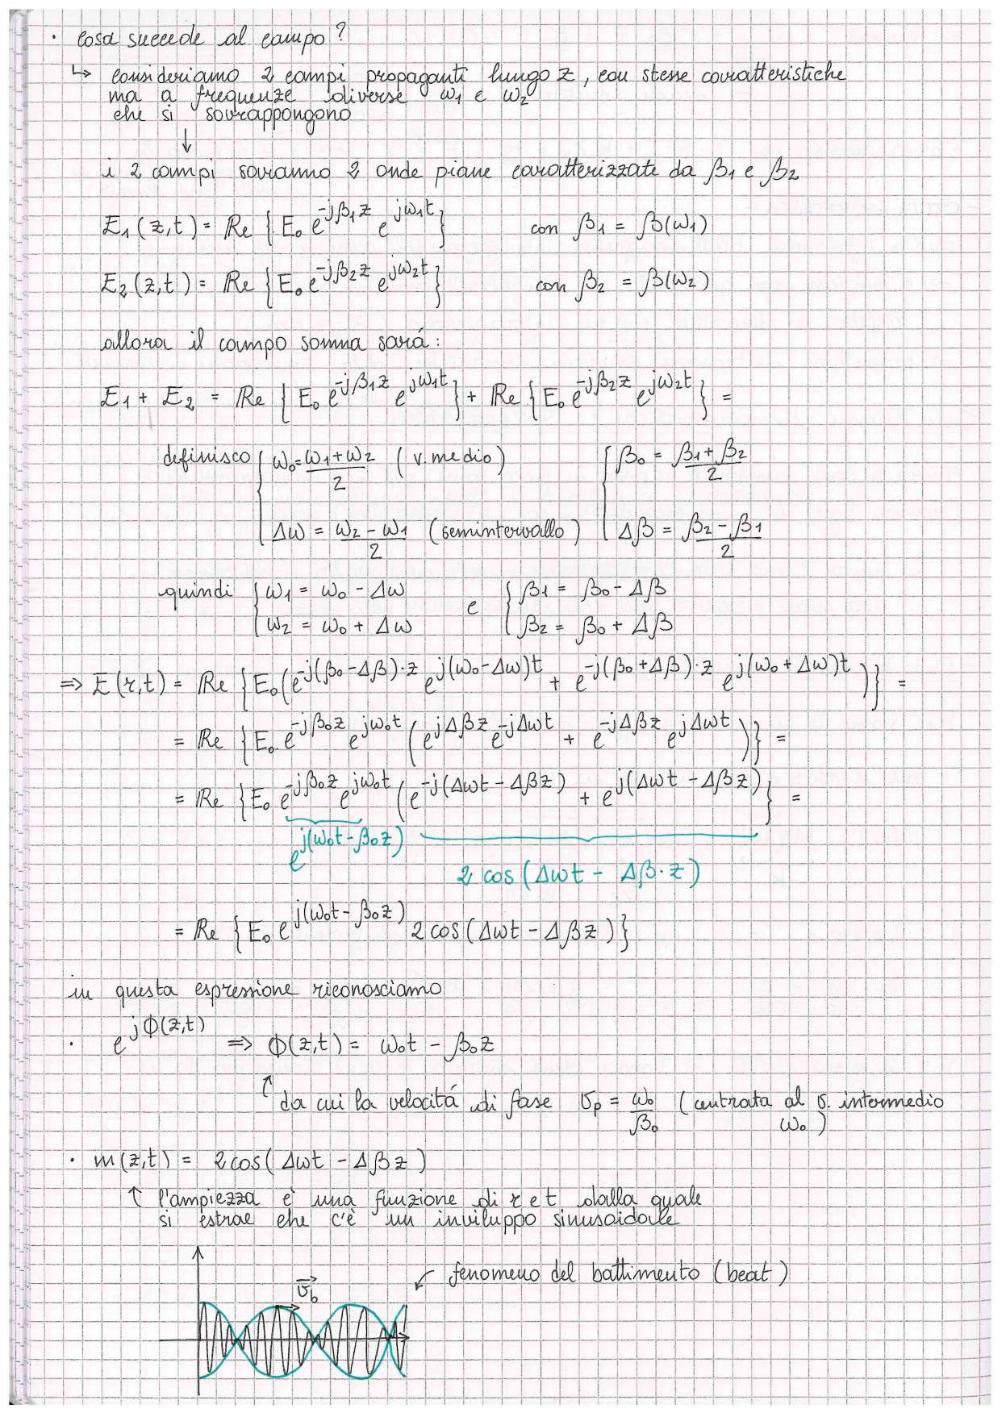 · Cosa succede al campo?
↳ consideriamo 2 campi propaganti lungo z, con stesse caratteristiche
ma a frequenze diverse ω₁ e ω₂
che si sovrappongono
↓
i 2 campi saranno 2 onde piane caratterizzate da β₁ e β₂
E₁(z,t) = Re {E₀ e^{-jβ₁z} e^{jω₁t}} con β₁ = β(ω₁)
E₂(z,t) = Re {E₀ e^{-jβ₂z} e^{jω₂t}} con β₂ = β(ω₂)
allora il campo somma sará:
E₁ + E₂ = Re {E₀ e^{-jβ₁z} e^{jω₁t}} + Re {E₀ e^{-jβ₂z} e^{jω₂t}} =
definisco { ω₀ = (ω₁+ω₂)/2 (v. medio) { β₀ = (β₁+β₂)/2
Δω = (ω₂-ω₁)/2 (semintervallo) Δβ = (β₂-β₁)/2
quindi { ω₁ = ω₀ - Δω e { β₁ = β₀ - Δβ
ω₂ = ω₀ + Δω β₂ = β₀ + Δβ
⇒ E(r,t) = Re {E₀(e^{-j(β₀-Δβ)·z} e^{j(ω₀-Δω)t} + e^{-j(β₀+Δβ)·z} e^{j(ω₀+Δω)t})} =
= Re {E₀ e^{-jβ₀z} e^{jω₀t} (e^{jΔβz} e^{-jΔωt} + e^{-jΔβz} e^{jΔωt})} =
= Re {E₀ e^{-jβ₀z} e^{jω₀t} (e^{-j(Δωt-Δβz)} + e^{j(Δωt-Δβz)})} =
e^{j(ω₀t-β₀z)}
2 cos(Δωt - Δβ·z)
= Re {E₀ e^{j(ω₀t-β₀z)} 2cos(Δωt - Δβz)}
in questa espressione riconosciamo
· e^{jΦ(z,t)} ⇒ Φ(z,t) = ω₀t - β₀z
↑ da cui la velocitá di fase v_p = ω₀/β₀ (centrata al v. intermedio
ω₀)
· m(z,t) = 2cos(Δωt - Δβz)
↑ l'ampiezza è una funzione di r e t dalla quale
si estrae che c'è un inviluppo sinusoidale
↙ fenomeno del battimento (beat)
v_b